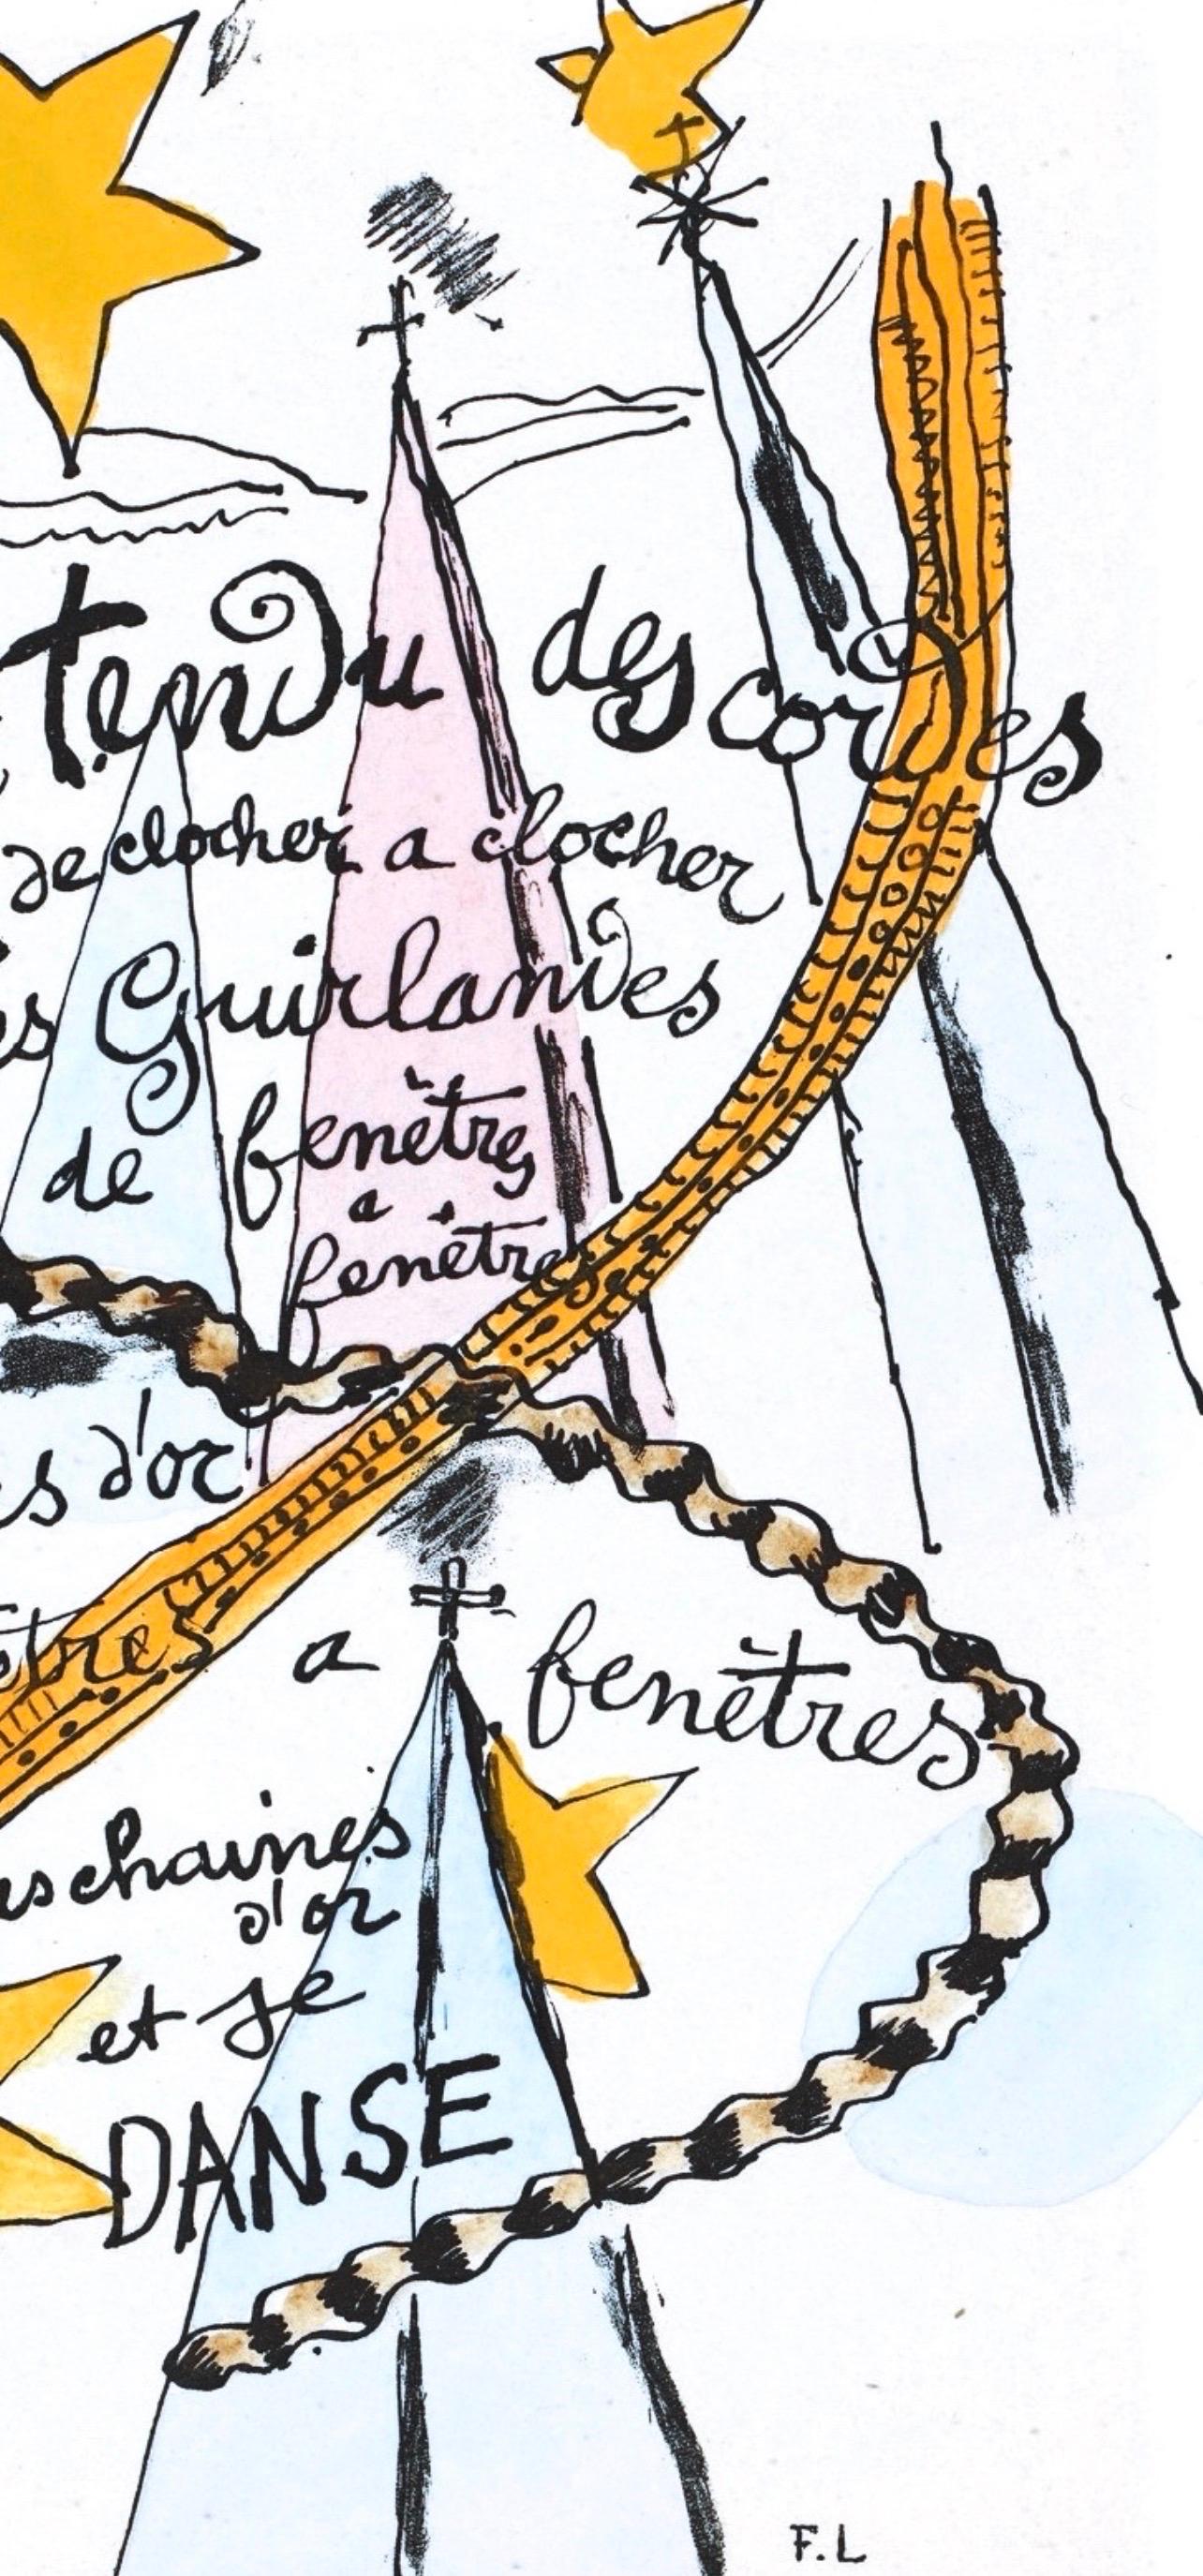 tendu des cordes
de clocher a clocher
Guirlandes
de fenêtres
a
fenêtre
d'or
a fenêtres
chaines
d'or
et je
DANSE
F.L